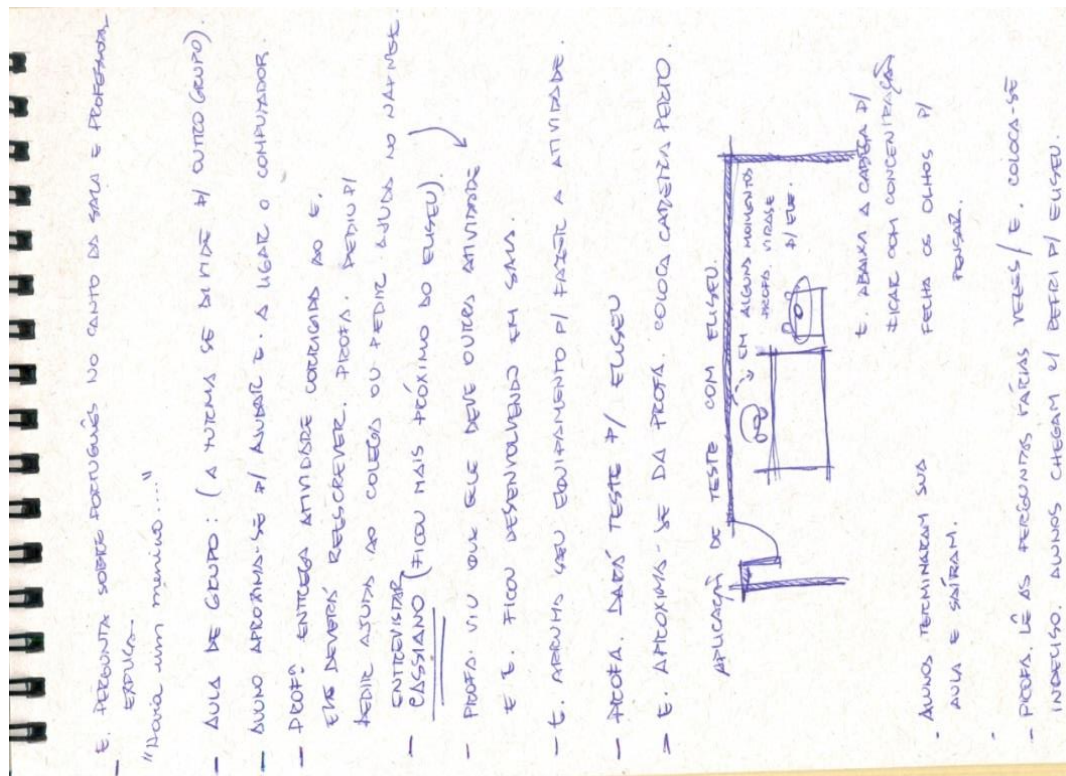 - E. PERGUNTA SOBRE PORTUGUÊS NO CANTO DA SALA E PROFESSORA
EXPLICA.
"Havia um menino..."
- AULA DE GRUPO: (A TURMA SE DIVIDE P/ OUTRO GRUPO)
- ALUNO APROXIMA-SE P/ AJUDAR E. A LIGAR O COMPUTADOR.
- PROFª ENTREGA ATIVIDADE CORRIGIDA AO E.
ELE DEVERÁ REESCREVER. PROFA. PEDIU P/
PEDIR AJUDA AO COLEGA OU PEDIR AJUDA NO
ENTREVISTAR
- CASSIANO (FICOU MAIS PRÓXIMO DO ELISEU).
- PROFA. VIU QUE ELE DEVE OUTRA ATIVIDADE
E E. FICOU DESENVOLVENDO EM SALA.
- E. ARRUMA SEU EQUIPAMENTO P/ FAZER A ATIVIDADE.
- PROFA. DARÁ TESTE P/ ELISEU
- E. APROXIMA-SE DA PROFA. COLOCA CADEIRA PERTO.
APLICAÇÃO DE TESTE COM ELISEU
EM ALGUNS MOMENTOS
PROFA. VIRASE
P/ ELE.
E. ABAIXA A CABEÇA P/
FICAR COM CONCENTRAÇÃO
FECHA OS OLHOS P/
PENSAR.
- ALUNOS TERMINARAM SUA
AULA E SAÍRAM.
- PROFA. LÊ AS PERGUNTAS VÁRIAS VEZES / E. COLOCA-SE
INDECISO. ALUNOS CHEGAM C/ REFRI P/ ELISEU.